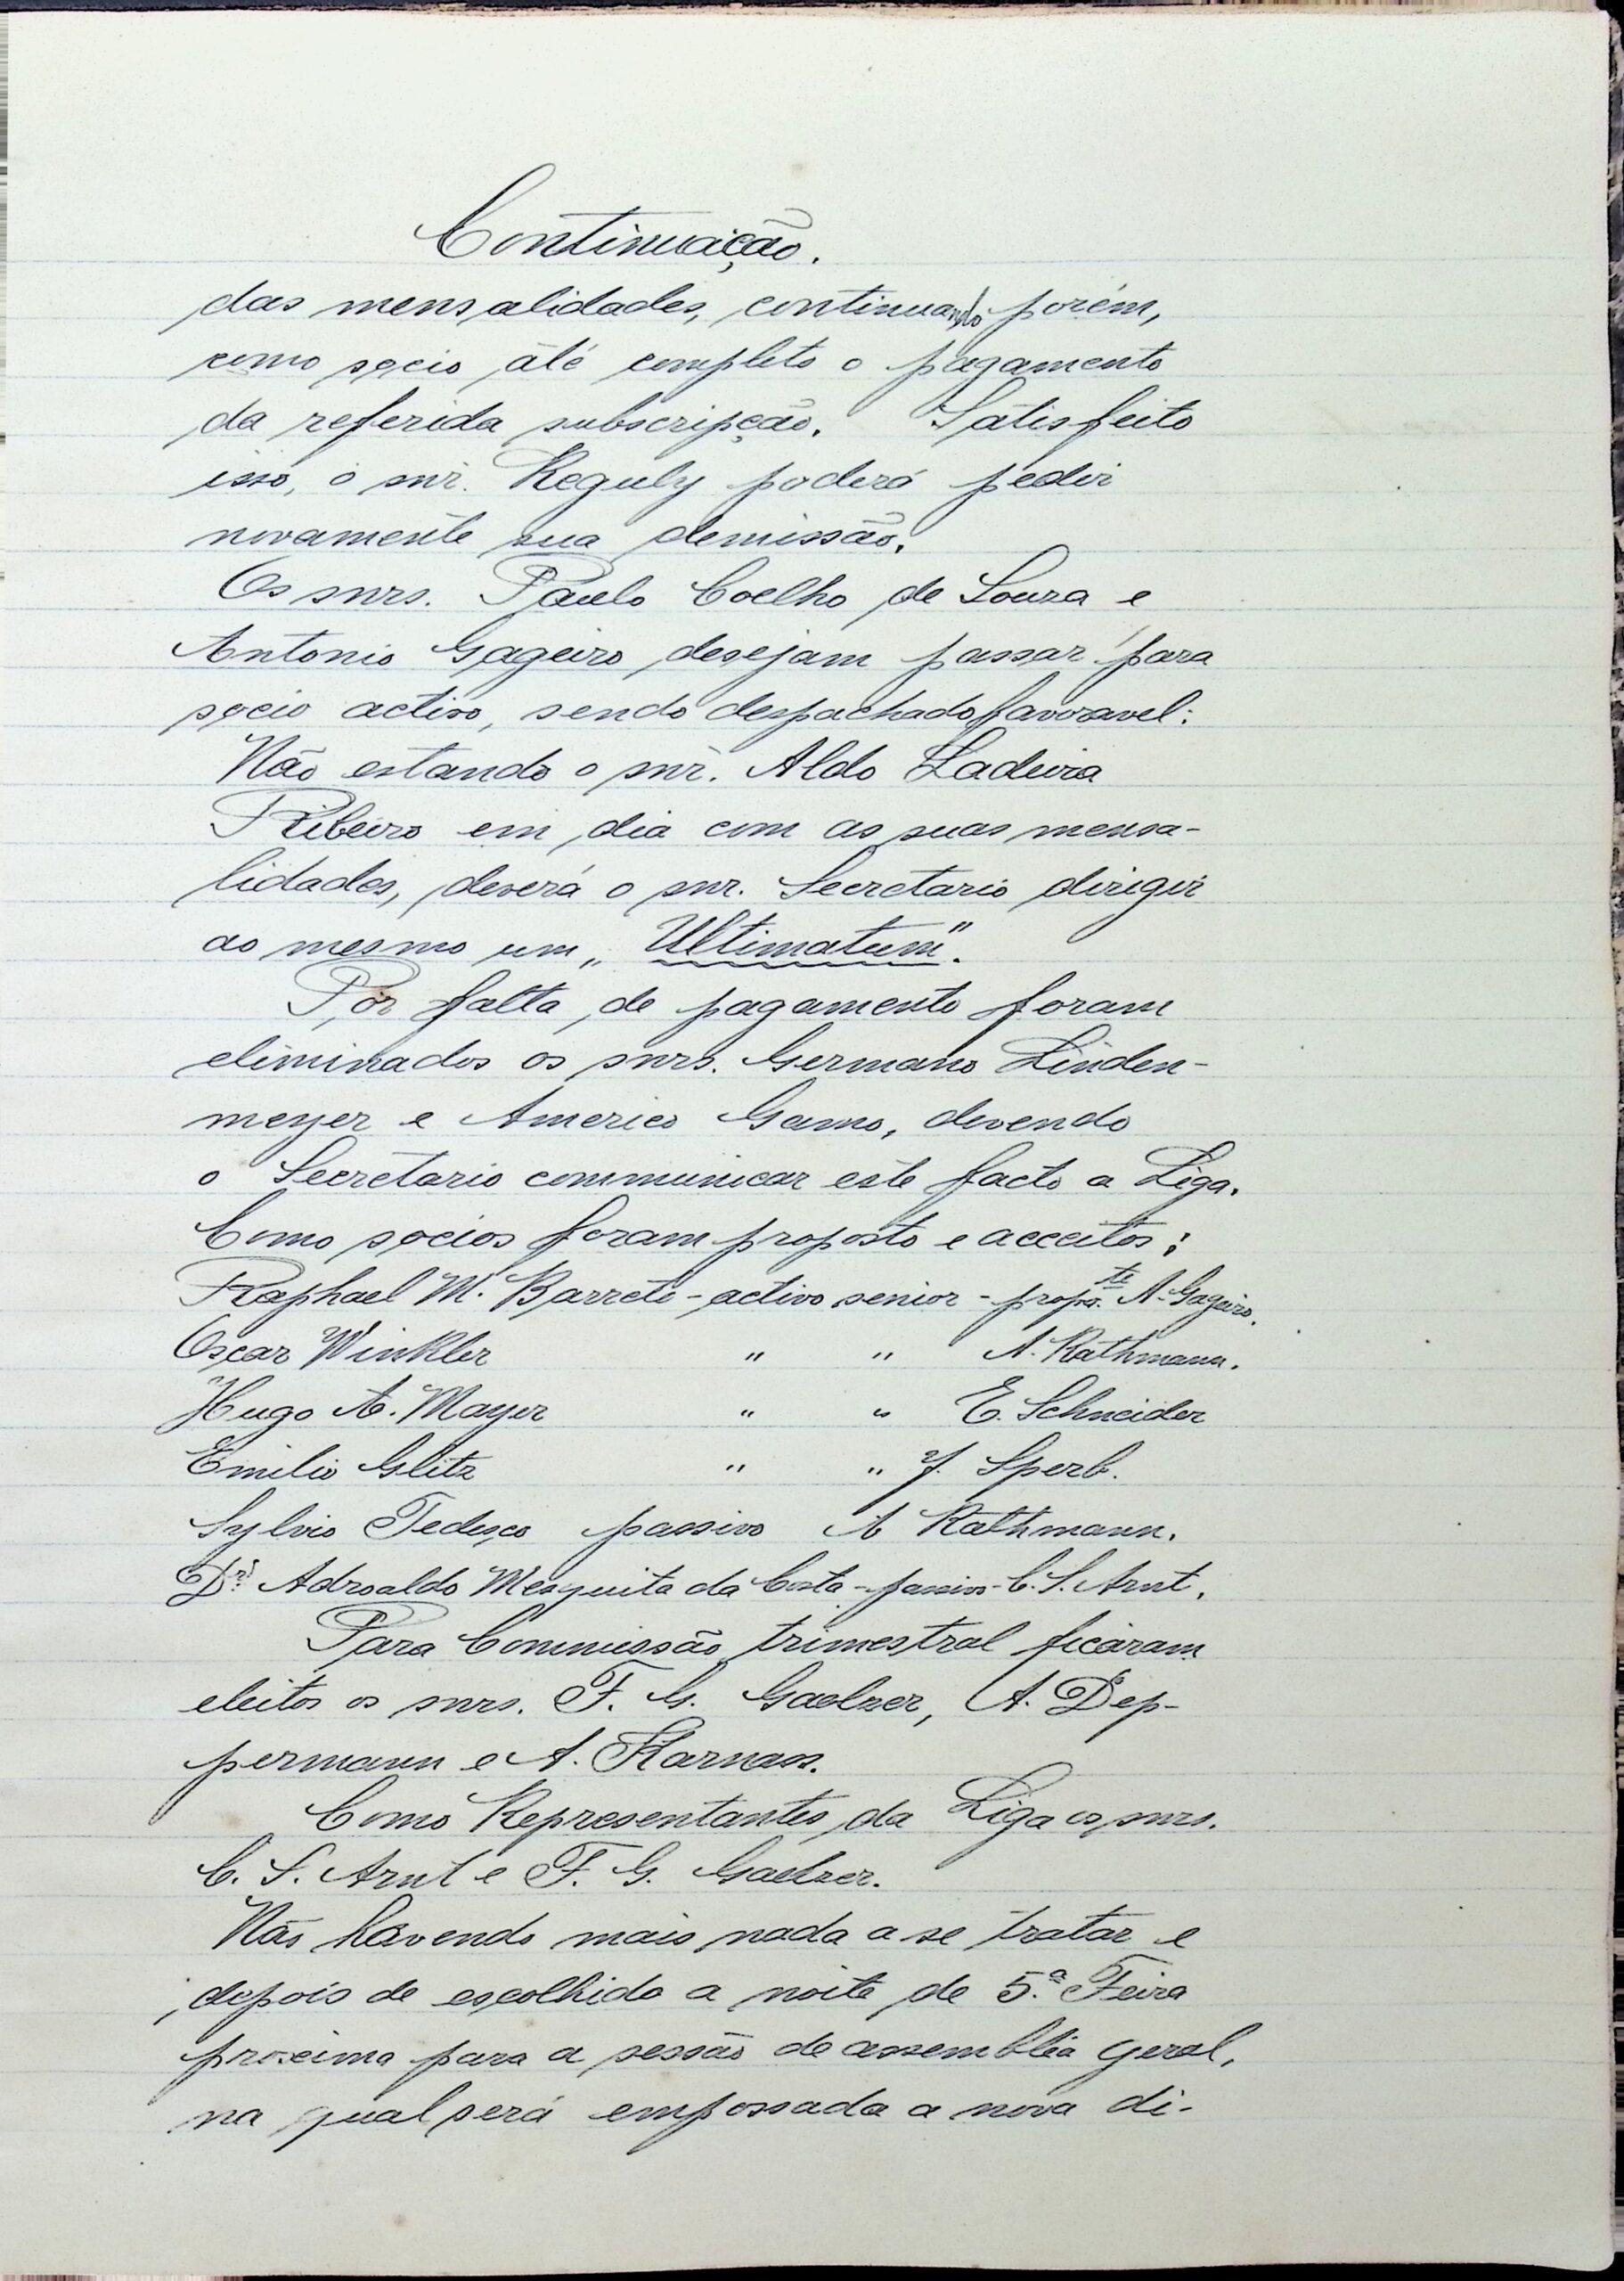 Continuação.
das mensalidades, continuando porém,
como socio até completo o pagamento
da referida subscripção. Satisfeito
isso, o snr. Reguly poderá pedir
novamente sua demissão.
Os snrs. Paulo Coelho de Souza e
Antonio Gageiro desejam passar para
socio activo, sendo despachado favoravel:
Não estando o snr. Aldo Ladeira
Ribeiro em dia com as suas mensa-
lidades, deverá o snr. Secretario dirigir
ao mesmo um „ Ultimatum".
Por falta de pagamento foram
eliminados os snrs. Germano Linden-
meyer e Americo Gamo, devendo
o Secretario communicar este facto a Liga.
Como socios foram proposto e acceitos:
Raphael M. Barreto - activo senior - propos.te A. Gageiro.
Oscar Winkler " " A. Rathmann.
Hugo A. Mayer " " E. Schneider
Emilio Glitz " " J. Sperb.
Sylvio Tedesco passivo A Rathmann.
Dr. Adroaldo Mesquita da Costa - passivo - C. S. Arnt.
Para Commissão trimestral ficáram
eleitos os snrs. F. G. Gaelzer, A. Dep-
permann e A. Karnass.
Como Representantes da Liga os snrs.
C. S. Arnt e F. G. Gaelzer.
Não havendo mais nada a se tratar e
depois de escolhida a noite de 5.ª Feira
proxima para a sessão de assembléa geral,
na qual será empossada a nova di-